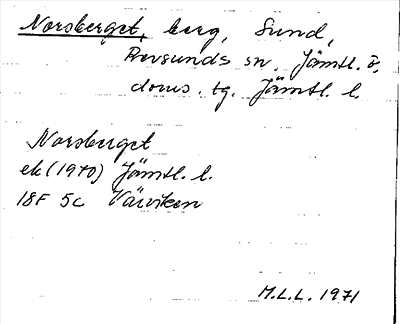 Norsberget, berg, Sund,
Revsunds sn, Jämtl. ö.
doms. tg. Jämtl. l.
Norsberget
ek (1970) Jämtl. l.
18F 5c Väviken
M.L.L. 1971